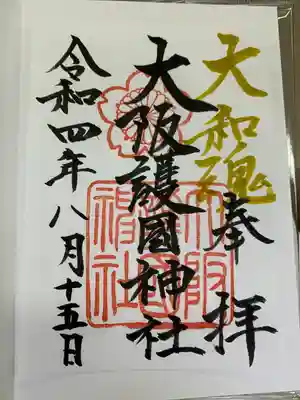 大和魂
奉拝
大阪護國神社
令和四年八月十五日